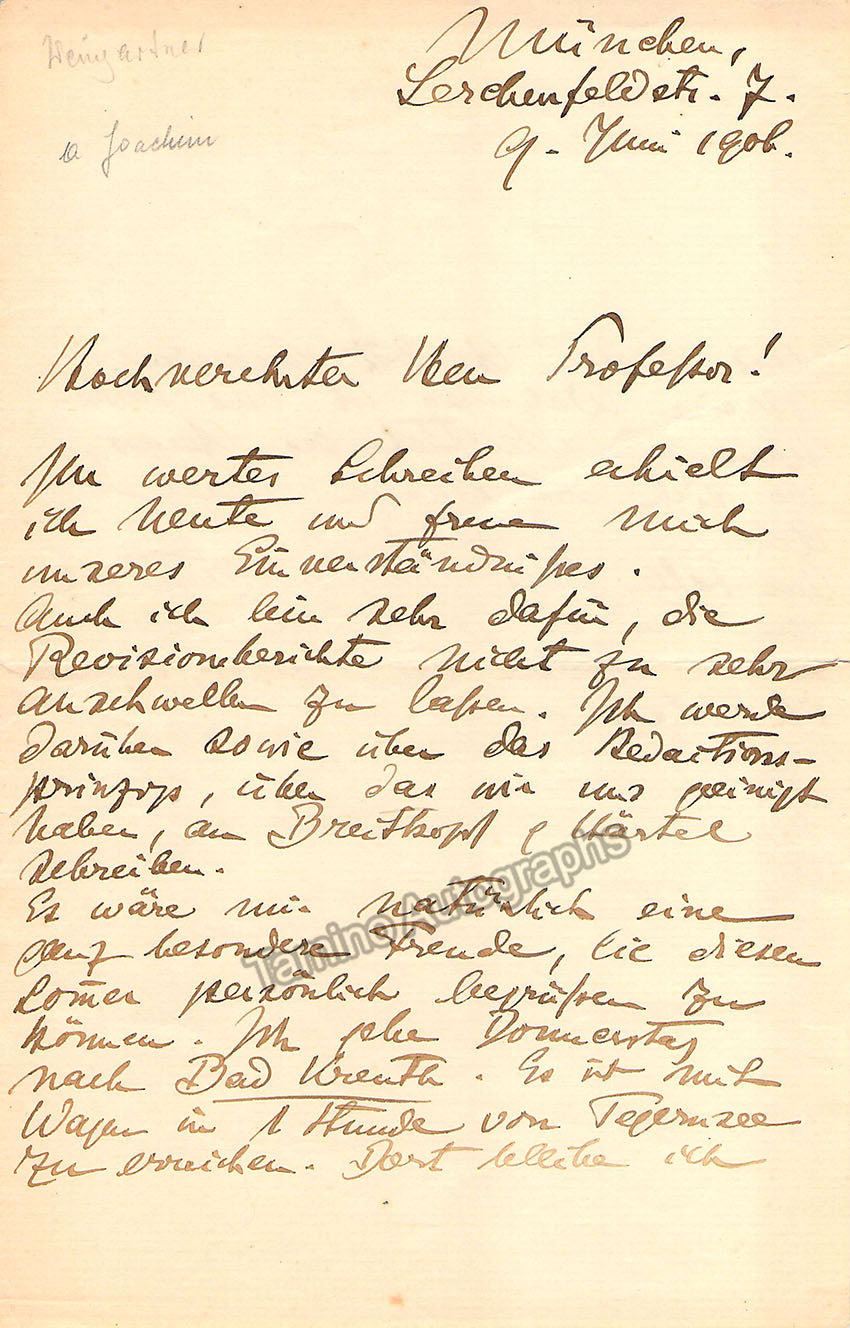 Weingartner
a Joachim
München,
Lerchenfeldstr. 7.
9. Juni 1906.
Hochverehrter Herr Professor!
Ihr wertes Schreiben erhielt
ich heute und freue mich
unseres Einverständnißes.
Auch ich bin sehr dafür, die
Revisionsberichte nicht zu sehr
anschwellen zu laßen. Ich werde
darüber sowie über das Redactions-
prinzip, über das wir uns geeinigt
haben, an Breitkopf & Härtel
schreiben.
Es wäre mir natürlich eine
ganz besondere Freude, Sie diesen
Som̅er persönlich begrüßen zu
können. Ich gehe Donnerstag
nach Bad Kreuth. Es ist mit
Wagen in 1 Stunde von Tegernsee
zu erreichen. Dort bleibe ich
Tamino Autographs